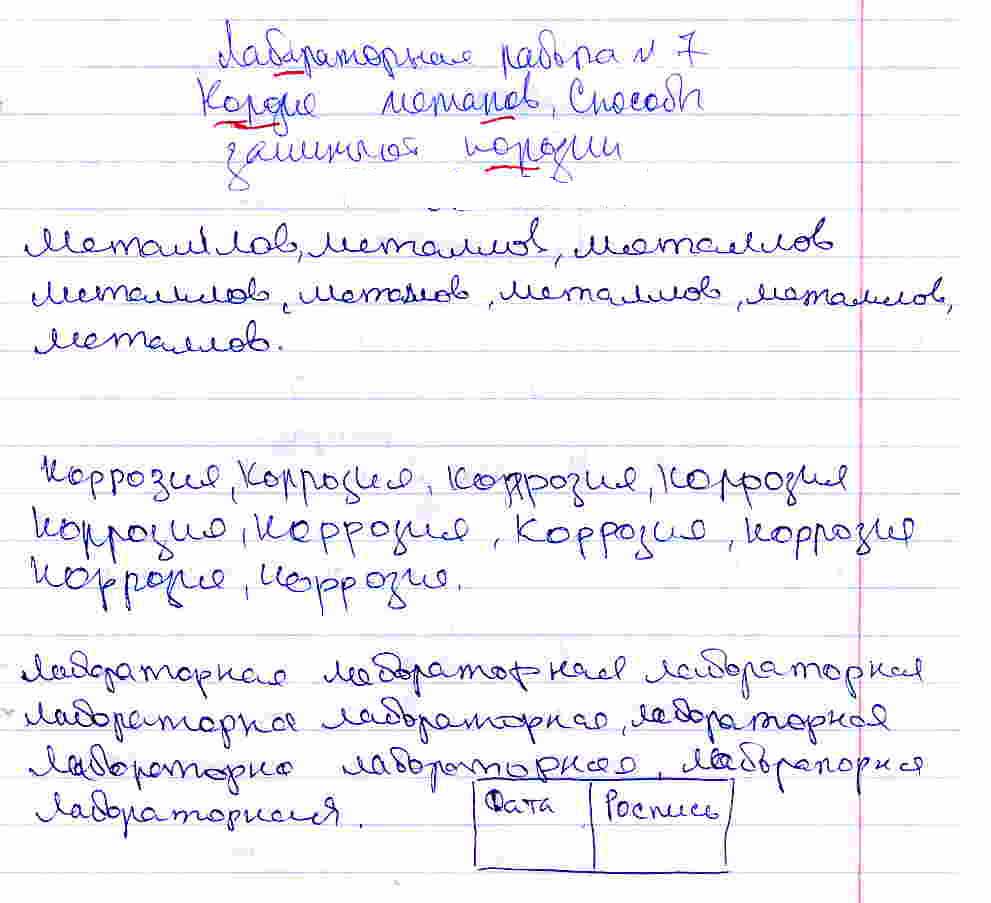 Лабараторная работа N 7
Корзие металов, Способы
защиты от корозии
Металлов, металлов, металлов
металлов, металлов, металлов, металлов,
металлов.
Коррозия, Коррозия, Коррозия, Коррозия
Коррозия, Коррозия, Коррозия, Коррозия
Коррозия, Коррозия.
Лабораторная лабораторная лабораторная
лабораторная лабораторная, лабораторная
Лабораторна лабораторная, лабораторная
Лабораторная.
Дата Роспись